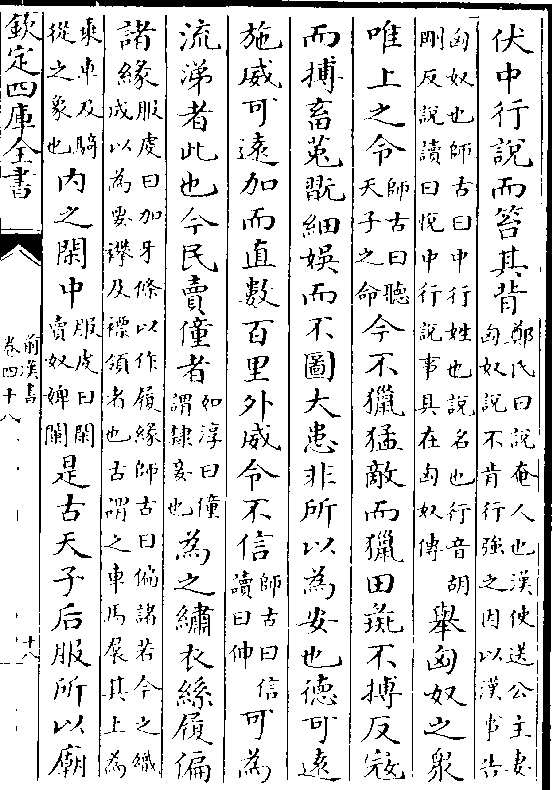 伏中行說而笞其背鄭氏曰說奄人也漢使送公主妻匈奴說不肯行強之因以漢事告
匈奴也師古曰中行姓也說名也行音胡剛反說讀曰悅中行說事具在匈奴傳舉匈奴之衆
唯上之令師古曰聽天子之命今不獵猛敵而獵田彘不搏反寇
而搏畜菟翫細娛而不圖大患非所以為安也德可遠
施威可遠加而直數百里外威令不信師古曰信讀曰伸可為
流涕者此也今民賣僮者如淳曰僮謂隸妾也為之繡衣絲履偏
諸緣服虔曰加牙條以作履緣師古曰偏諸若今之織成以為要襻及褾領者也古謂之車馬裠其上為
乘車及騎從之象也内之閑中服虔曰閑賣奴婢闌是古天子后服所以廟
欽定四庫全書
前漢書
卷四十八
十八